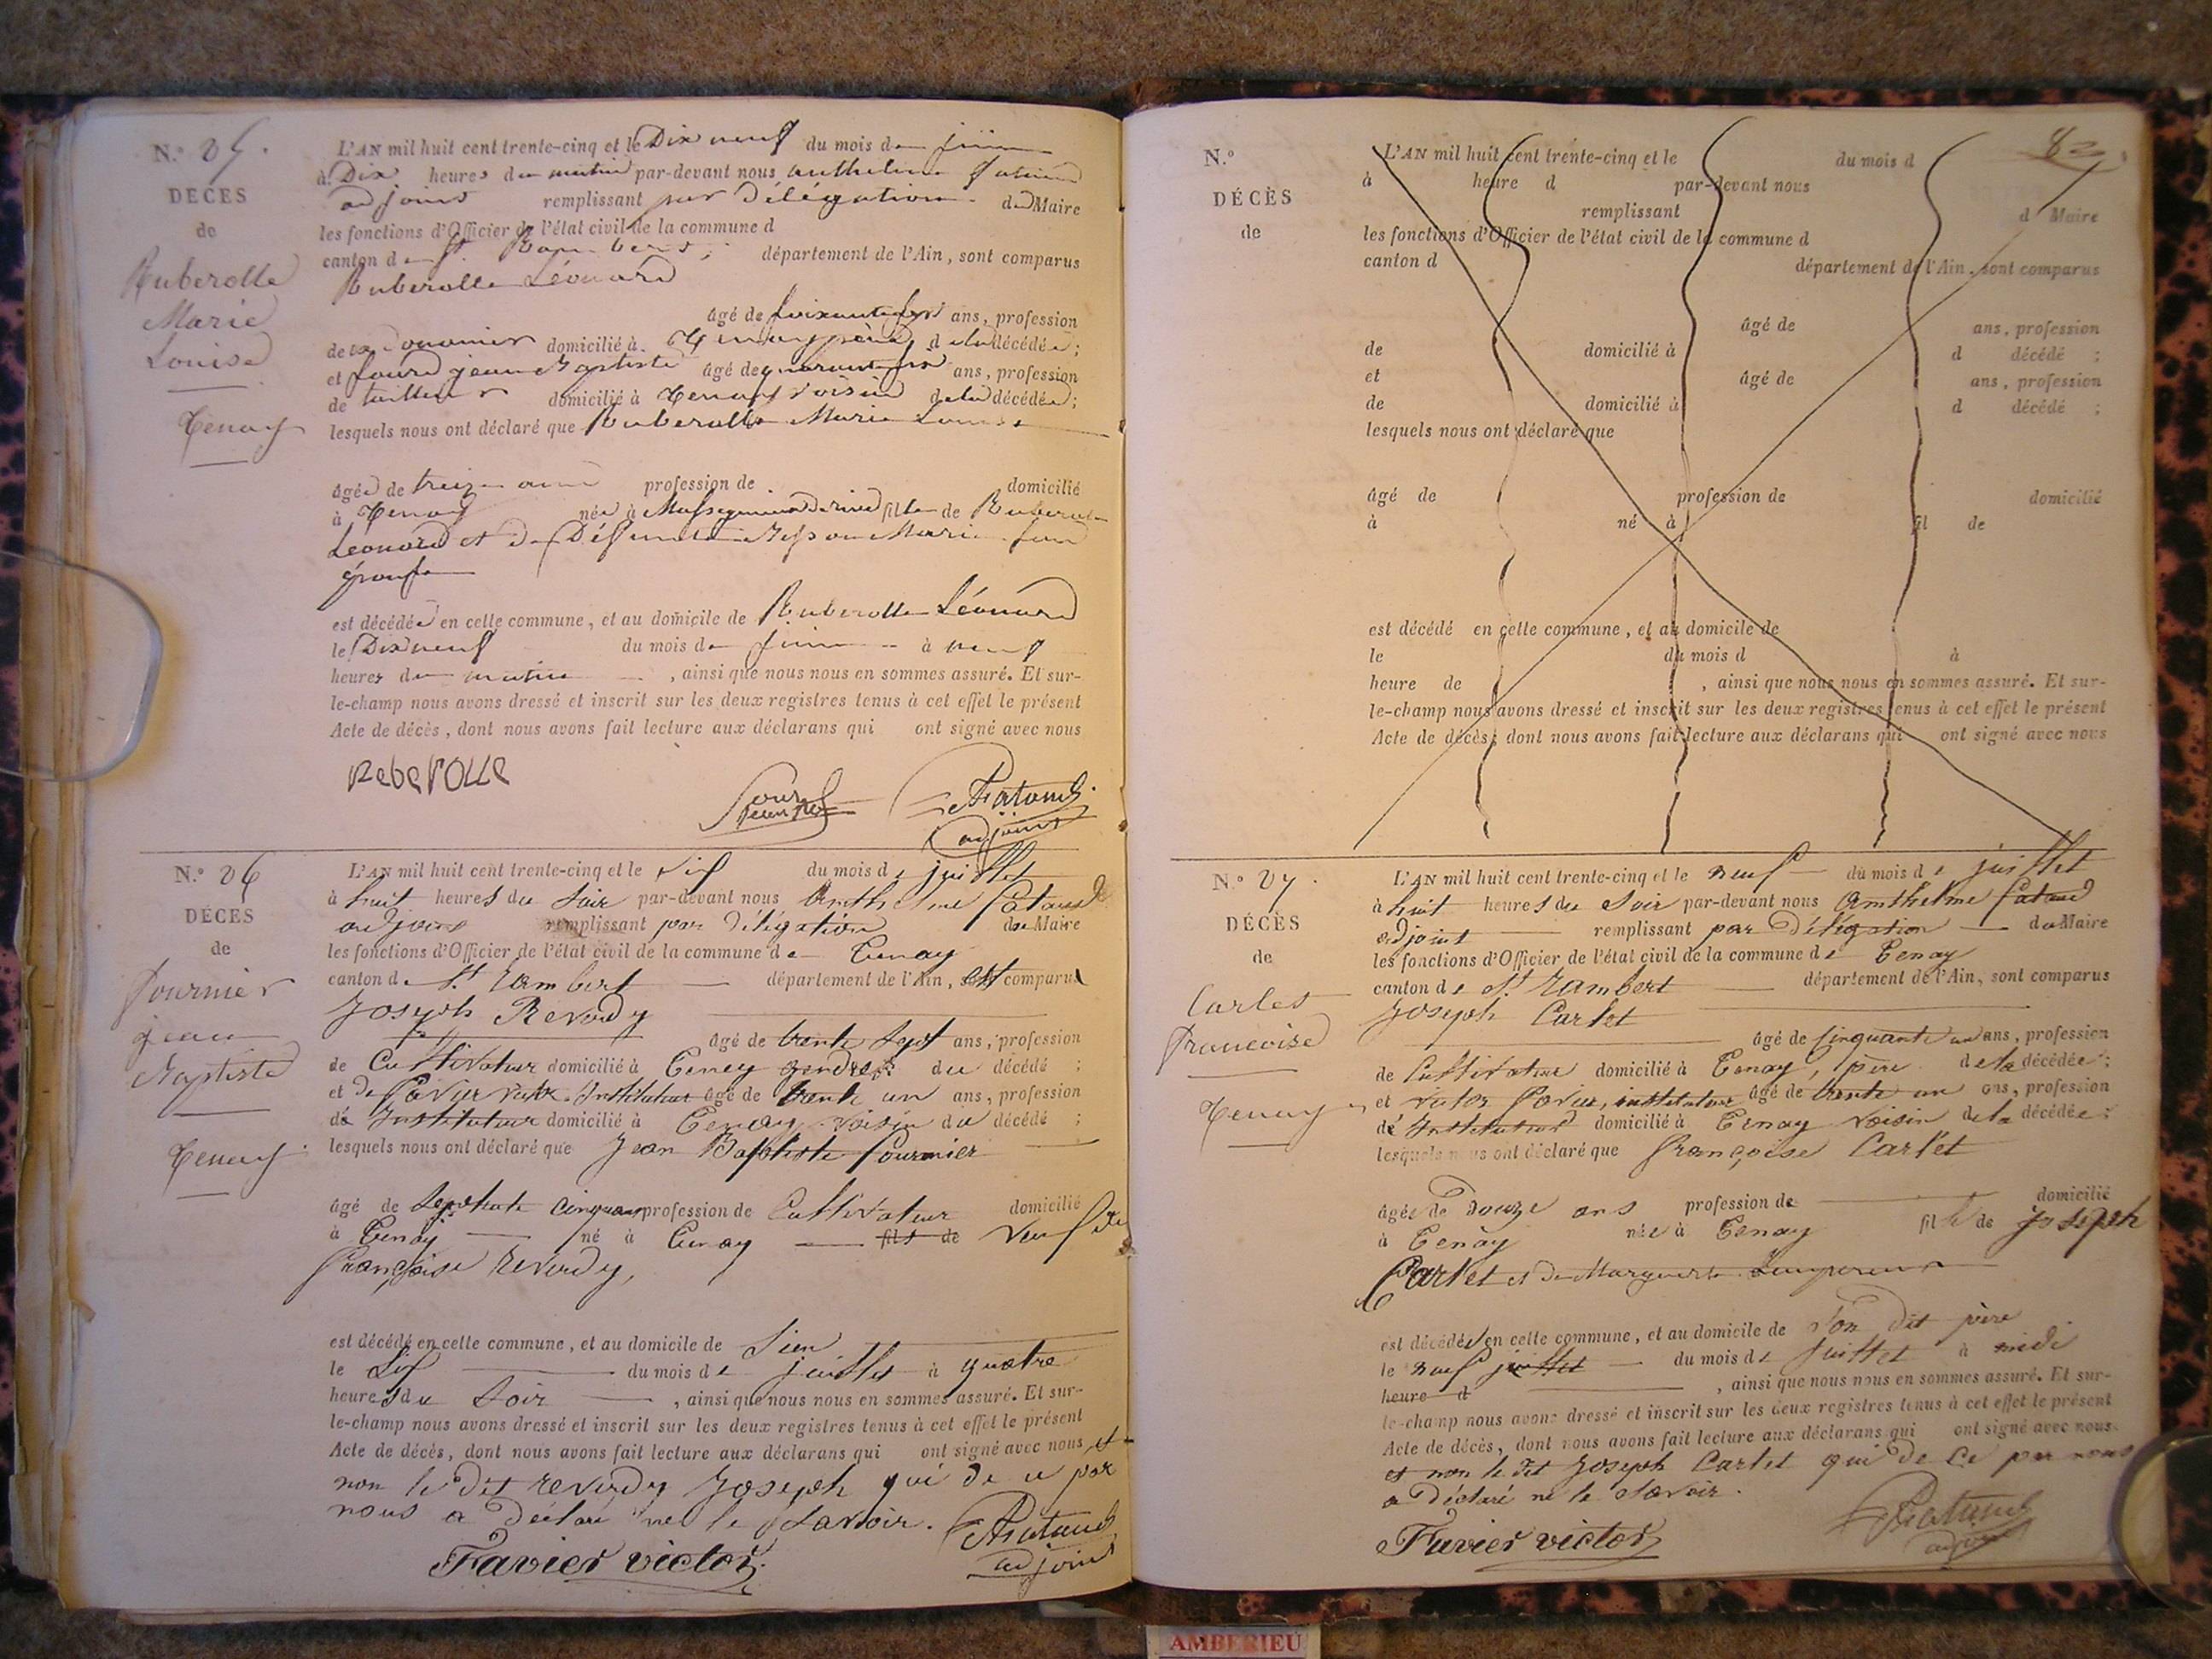 N.° 25.
DÉCES
de
Ruberolle
Marie
Louise
Tenay
L'AN mil huit cent trente-cinq et le Dix neuf du mois de juin
à Dix heures du matin par-devant nous anthelme
adjoint remplissant par Délégation du Maire
les fonctions d'Officier de l'état civil de la commune d
canton de St. Rambert; département de l'Ain, sont comparus
Ruberolle Léonard
âgé de ans, profession
de domicilié à Tenay père de la décédée;
et jean Baptiste âgé de ans, profession
de tailleur domicilié à Tenay voisin de la décédée;
lesquels nous ont déclaré que Ruberolle Marie Louise
âgée de treize ans profession de domicilié
à Tenay née à fille de Ruberolle
Léonard et de Défunte Marie
épouse
est décédée en cette commune, et au domicile de Ruberolle Léonard
le Dix neuf du mois de juin à neuf
heures du matin , ainsi que nous nous en sommes assuré. Et sur-
le-champ nous avons dressé et inscrit sur les deux registres tenus à cet effet le présent
Acte de décès, dont nous avons fait lecture aux déclarans qui ont signé avec nous
ReberOLLe
Fataud
adjoint
N.° 26
DÉCES
de
Fournier
jean
Baptiste
Tenay
L'AN mil huit cent trente-cinq et le six du mois de juillet
à huit heures du soir par-devant nous Anthelme Fataud
adjoint remplissant par Délégation du Maire
les fonctions d'Officier de l'état civil de la commune de Tenay
canton de St. Rambert département de l'Ain, est comparu
Joseph Reverdy
âgé de trente sept ans, profession
de Cultivateur domicilié à Tenay gendre du décédé ;
et de Favier Victor Instituteur âgé de trente un ans, profession
de Instituteur domicilié à Tenay voisin du décédé ;
lesquels nous ont déclaré que Jean Baptiste Fournier
âgé de Septante cinq ans profession de Cultivateur domicilié
à Tenay né à Tenay fils de veuf de
Françoise Reverdy,
est décédé en cette commune, et au domicile de Sien
le Six du mois de juillet à quatre
heures du Soir , ainsi que nous nous en sommes assuré. Et sur-
le-champ nous avons dressé et inscrit sur les deux registres tenus à cet effet le présent
Acte de décès, dont nous avons fait lecture aux déclarans qui ont signé avec nous et
non le dit Reverdy Joseph qui de ce par
nous a déclaré ne le Savoir.
Fataud
adjoint
Favier victor
82
N.°
DÉCÈS
de
L'AN mil huit cent trente-cinq et le du mois d
à heure d par-devant nous
remplissant d Maire
les fonctions d'Officier de l'état civil de la commune d
canton d département de l'Ain, sont comparus
âgé de ans, profession
de domicilié à d décédé ;
et âgé de ans, profession
de domicilié à d décédé ;
lesquels nous ont déclaré que
âgé de profession de domicilié
à né à fil de
est décédé en cette commune, et au domicile de
le du mois d à
heure de , ainsi que nous nous en sommes assuré. Et sur-
le-champ nous avons dressé et inscrit sur les deux registres tenus à cet effet le présent
Acte de décès, dont nous avons fait lecture aux déclarans qui ont signé avec nous
N.° 27.
DÉCÈS
de
Carlet
Francoise
Tenay
L'AN mil huit cent trente-cinq et le neuf du mois de juillet
à huit heures du Soir par-devant nous Anthelme Fataud
adjoint remplissant par Délégation du Maire
les fonctions d'Officier de l'état civil de la commune de Tenay
canton de St. Rambert département de l'Ain, sont comparus
Joseph Carlet
âgé de Cinquante un ans, profession
de Cultivateur domicilié à Tenay, père de la décédée;
et Victor Favier, instituteur âgé de trente un ans, profession
de Instituteur domicilié à Tenay voisin de la décédée;
lesquels nous ont déclaré que Françoise Carlet
âgée de Douze ans profession de domicilié
à Tenay née à Tenay fille de Joseph
Carlet et de Marguerite
est décédée en cette commune, et au domicile de Son dit père
le neuf juillet du mois de Juillet à midi
heure d , ainsi que nous nous en sommes assuré. Et sur-
le-champ nous avons dressé et inscrit sur les deux registres tenus à cet effet le présent
Acte de décès, dont nous avons fait lecture aux déclarans qui ont signé avec nous
et non le dit Joseph Carlet qui de ce par nous
a déclaré ne le Savoir.
Favier victor
Fataud
adjoint
AMBERIEU